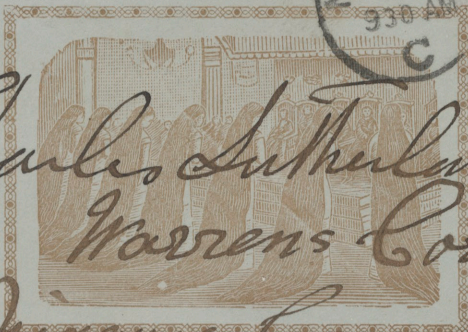 930 AM
C
Charles Sutherlan
Warrens Co